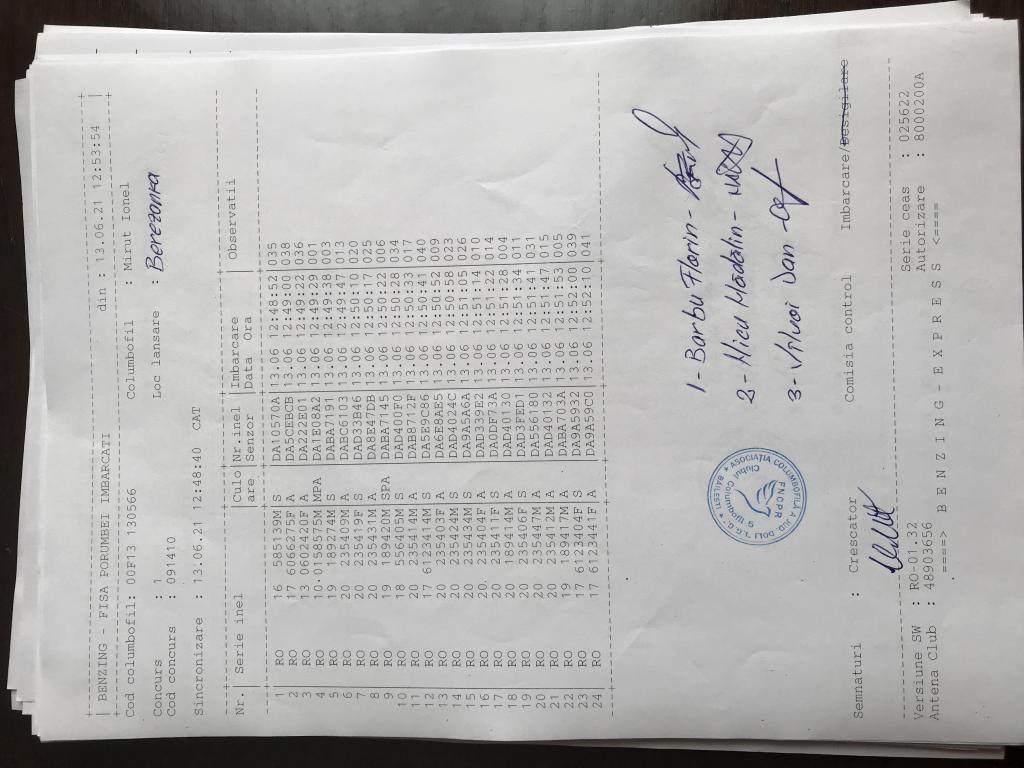 BENZING - FISA PORUMBEI IMBARCATI din : 13.06.21 12:53:54
Cod columbofil: 00F113 130566 Columbofil : Mirut Ionel
Concurs : 1 Loc lansare : Berezonka
Cod concurs : 091410
Sincronizare : 13.06.21 12:48:40 CAT
Nr. Serie inel Culo Nr.inel Imbarcare Observatii
are Senzor Data Ora
1 RO 16 585139M S DA10570A 13.06 12:48:52 035
2 RO 17 6066275F A DA5CEBCB 13.06 12:49:00 038
3 RO 13 0602420F A DA222E01 13.06 12:49:22 036
4 RO 10.0158575M MPA DA1E08A2 13.06 12:49:29 001
5 RO 19 189274M S DABA7191 13.06 12:49:38 003
6 RO 20 235409M S DABC6103 13.06 12:49:47 013
7 RO 20 235419F S DAD33B46 13.06 12:50:10 020
8 RO 20 235431M A DA8E47DB 13.06 12:50:17 025
9 RO 19 189420M SPA DABA7145 13.06 12:50:22 006
10 RO 18 556405M S DAD400F0 13.06 12:50:28 034
11 RO 20 235414M A DAB8712F 13.06 12:50:33 017
12 RO 17 6123414M S DA5E9C86 13.06 12:50:41 040
13 RO 20 235403F A DA6E8AE5 13.06 12:50:52 009
14 RO 20 235424M S DAD4024C 13.06 12:50:58 023
15 RO 20 235434M S DA9A5A6A 13.06 12:51:03 026
16 RO 20. 235404F A DAD339E2 13.06 12:51:14 010
17 RO 20 235411F S DA0DF73A 13.06 12:51:22 014
18 RO 19 189414M A DAD40130 13.06 12:51:28 004
19 RO 20 235406F S DAD3FED1 13.06 12:51:34 011
20 RO 20 235447M A DA556180 13.06 12:51:41 031
21 RO 20 235412M A DAD40132 13.06 12:51:47 015
22 RO 19 189417M A DABA703A 13.06 12:51:53 005
23 RO 17 6123404F S DA9A5932 13.06 12:52:00 039
24 RO 17 6123341F A DA9A59C0 13.06 12:52:10 041
1- Barbu Florin -
2- Micu Mădălin -
3- Vîlvoi Dan
ASOCIAȚIA COLUMBOFILĂ A JUD. DOLJ "I.G.G." * BĂILEȘTI *
Clubul Columbofil
FNCPR
Semnaturi : Crescator Comisia control Imbarcare/Desigilare
Versiune SW : RO-01.32 Serie ceas : 025622
Antena Club : 48903656 Autorizare : 8000200A
====> B E N Z I N G - E X P R E S S <====